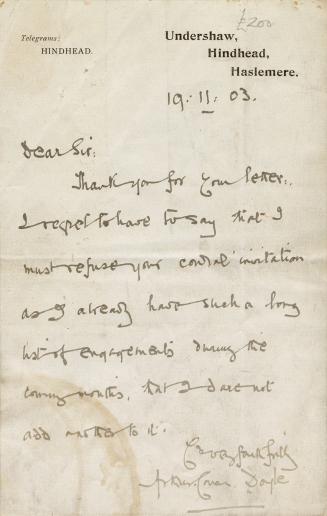 £200
Telegrams:
HINDHEAD.
Undershaw,
Hindhead,
Haslemere.
19.11.03.
Dear Sir:
Thank you for your letter.
I regret to have to say that I
must refuse your cordial invitation
as I already have such a long
list of engagements during the
coming months, that I dare not
add another to it.
Yours very faithfully
Arthur Conan Doyle